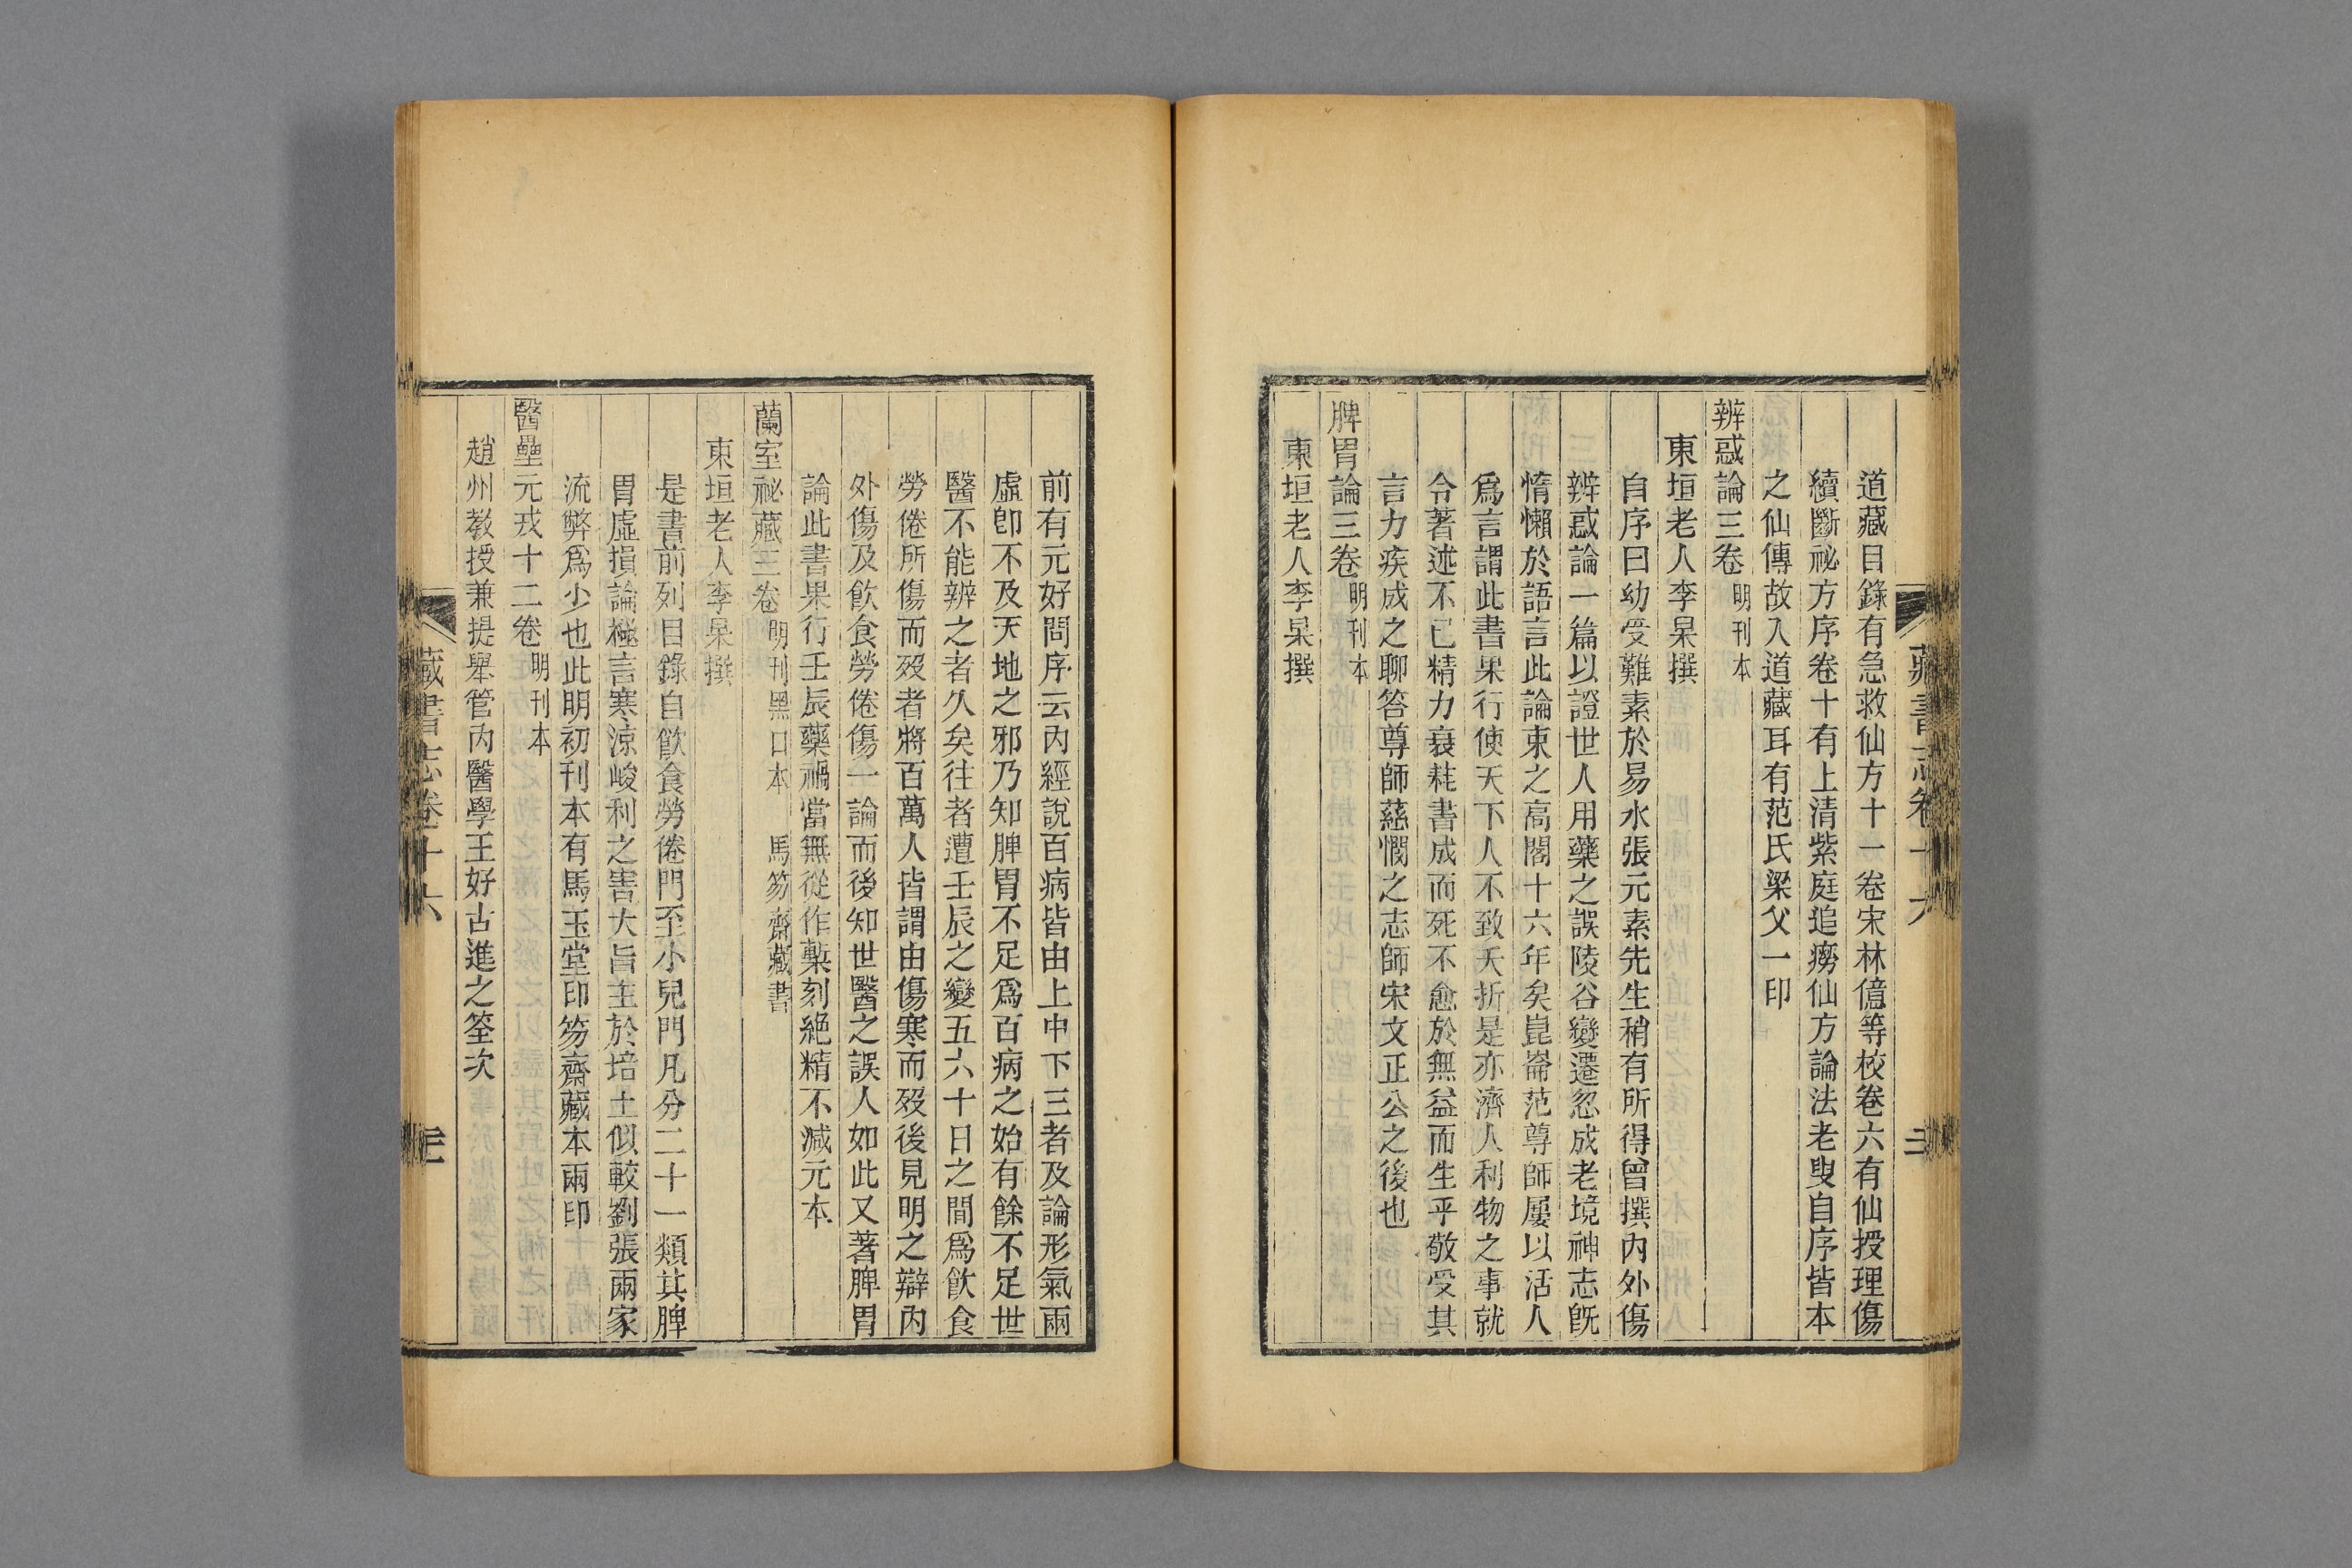 道藏目錄有急救仙方十一卷宋林億等校卷六有仙授理傷
續斷祕方序卷十有上清紫庭追癆仙方論法老叟自序皆本
之仙傳故入道藏耳有范氏梁父一印
辨惑論三卷 明刊本
東垣老人李杲撰
自序曰幼受難素於易水張元素先生稍有所得曾撰內外傷
辨惑論一篇以證世人用藥之誤陵谷變遷忽成老境神志旣
惰懶於語言此論束之高閣十六年矣崑崙范尊師屢以活人
爲言謂此書果行使天下人不致夭折是亦濟人利物之事就
令著述不已精力衰耗書成而死不愈於無益而生乎敬受其
言力疾成之聊答尊師慈憫之志師宋文正公之後也
脾胃論三卷 明刊本
東垣老人李杲撰
前有元好問序云內經說百病皆由上中下三者及論形氣兩
虛卽不及天地之邪乃知脾胃不足爲百病之始有餘不足世
醫不能辨之者久矣往者遭壬辰之變五六十日之間爲飮食
勞倦所傷而歿者將百萬人皆謂由傷寒而歿後見明之辯內
外傷及飮食勞倦傷一論而後知世醫之誤人如此又著脾胃
論此書果行壬辰藥禍當無從作槧刻絕精不減元本
蘭室祕藏三卷 明刊黑口本 馬笏齋藏書
東垣老人李杲撰
是書前列目錄自飮食勞倦門至小兒門凡分二十一類其脾
胃虛損論極言寒涼峻利之害大旨主於培土似較劉張兩家
流弊爲少也此明初刊本有馬玉堂印笏齋藏本兩印
醫壘元戎十二卷 明刊本
趙州敎授兼提舉管內醫學王好古進之筌次
藏書志卷十六